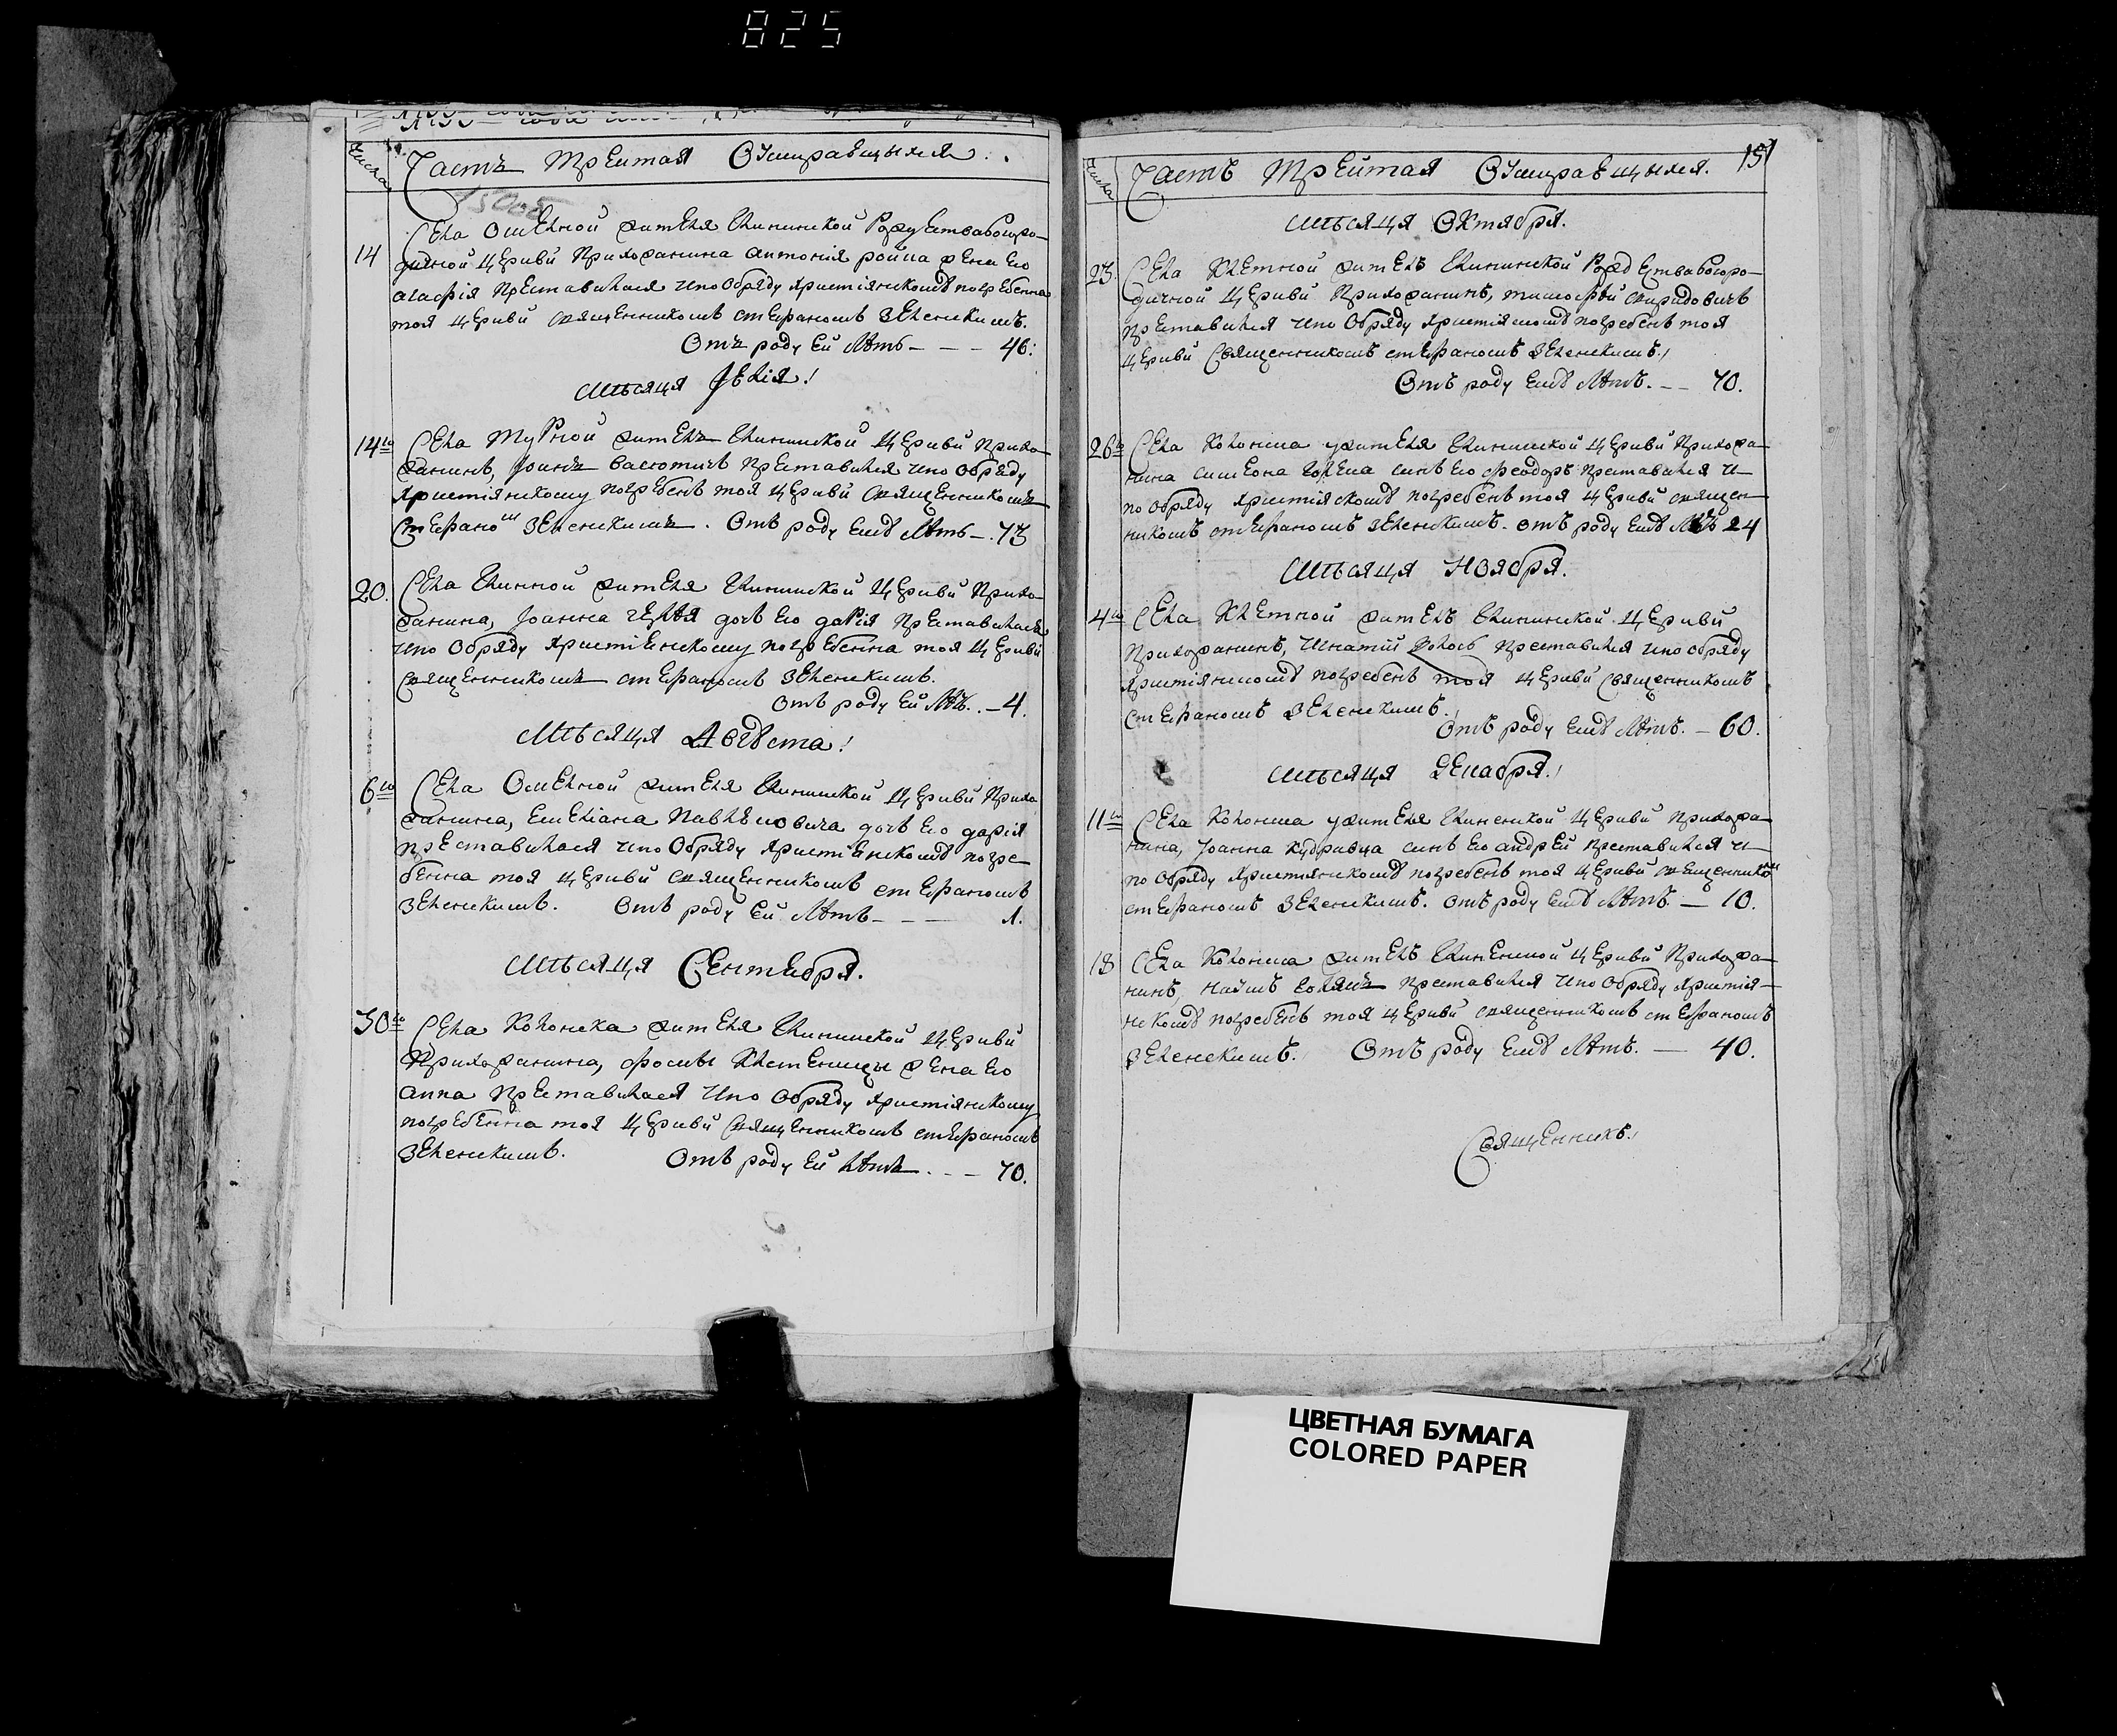 825
Числа
Часть Третая О Умиравщыхся.
150об
14
Села Омелной жителя Глининской Рождества Богоро-
дичной Церкви Прихожанина Антонія ройпа жена его
агафія преставилася и по Обряду християнскомѹ погребенна
тоя Церкви священникомъ стефаномъ Зеленскимъ.
Отъ роду Ей Лѣтъ - - - 46:
Мѣсяца Іюлія!
14го Села жителъ Глининской Церкви прихо-
жанинъ, Іоаннъ преставился и по обряду
християнскому погребенъ тоя Церкви священникомъ
Стефаномъ Зеленскимъ. Отъ роду Ему Лѣтъ -. 73
20. Села жителя Глининской Церкви прихо-
жанина, Іоанна дочь его дарія преставилася
и по Обряду християнскому погребенна тоя Церкви
священникомъ стефаномъ Зеленскимъ.
Отъ роду Ей Лѣтъ. - 4.
Мѣсяца Августа!
6го Села Омелной жителя Глининской Церкви прихо
жанина, Емеліана Павленовича дочь его дарія
преставилася и по Обряду християнскомѹ погре-
бенна тоя Церкви священникомъ стефаномъ
Зеленскимъ. Отъ роду Ей Лѣтъ - - - 1.
Мѣсяца Сентебря.
30го Села Колонска жителя Глининской Церкви
Прихожанина, жена его
анна преставилася и по Обряду християнскому
погребенна тоя Церкви священникомъ стефаномъ
Зеленскимъ. Отъ роду Ей Лѣтъ. - - 70.
151
Числа
Часть Третая О Умиравщыхся.
Мѣсяца Октября.
23. Села Клетной жителъ Глининской Рождества Богоро-
дичной Церкви Прихожанинъ, тимофей спиридовичъ
преставился и по Обряду християнскомѹ погребенъ тоя
Церкви Священникомъ стефаномъ Зеленскимъ.
Отъ роду Емѹ Лѣтъ. - - 70.
26го Села Колонска жителя Глининской Церкви прихожа-
нина симеона сынъ его феодоръ преставился и
по обряду християнскомѹ погребенъ тоя Церкви священ-
никомъ стефаномъ Зеленскимъ. отъ роду Емѹ Лѣтъ 24
Мѣсяца Ноября.
4го Села Клетной жителъ Глининской Церкви
прихожанинъ, Игнатій преставился и по обряду
християнскомѹ погребенъ тоя Церкви Священникомъ
Стефаномъ Зеленскимъ.
Отъ роду Емѹ Лѣтъ. - 60.
Мѣсяца Декабря.
11го Села Колонска жителя Глининской Церкви прихожа-
нина, Іоанна Кудравца сынъ его андрей преставился и
по Обряду християнскомѹ погребенъ тоя Церкви священникомъ
стефаномъ Зеленскимъ. Отъ роду Емѹ Лѣтъ. - 10.
18 Села Колонска жителъ Глининской Церкви прихожа-
нинъ, преставился и по Обряду християн-
скомѹ погребенъ тоя Церкви священникомъ стефаномъ
Зеленскимъ. Отъ роду Емѹ Лѣтъ. - 40.
Священникъ
ЦВЕТНАЯ БУМАГА
COLORED PAPER